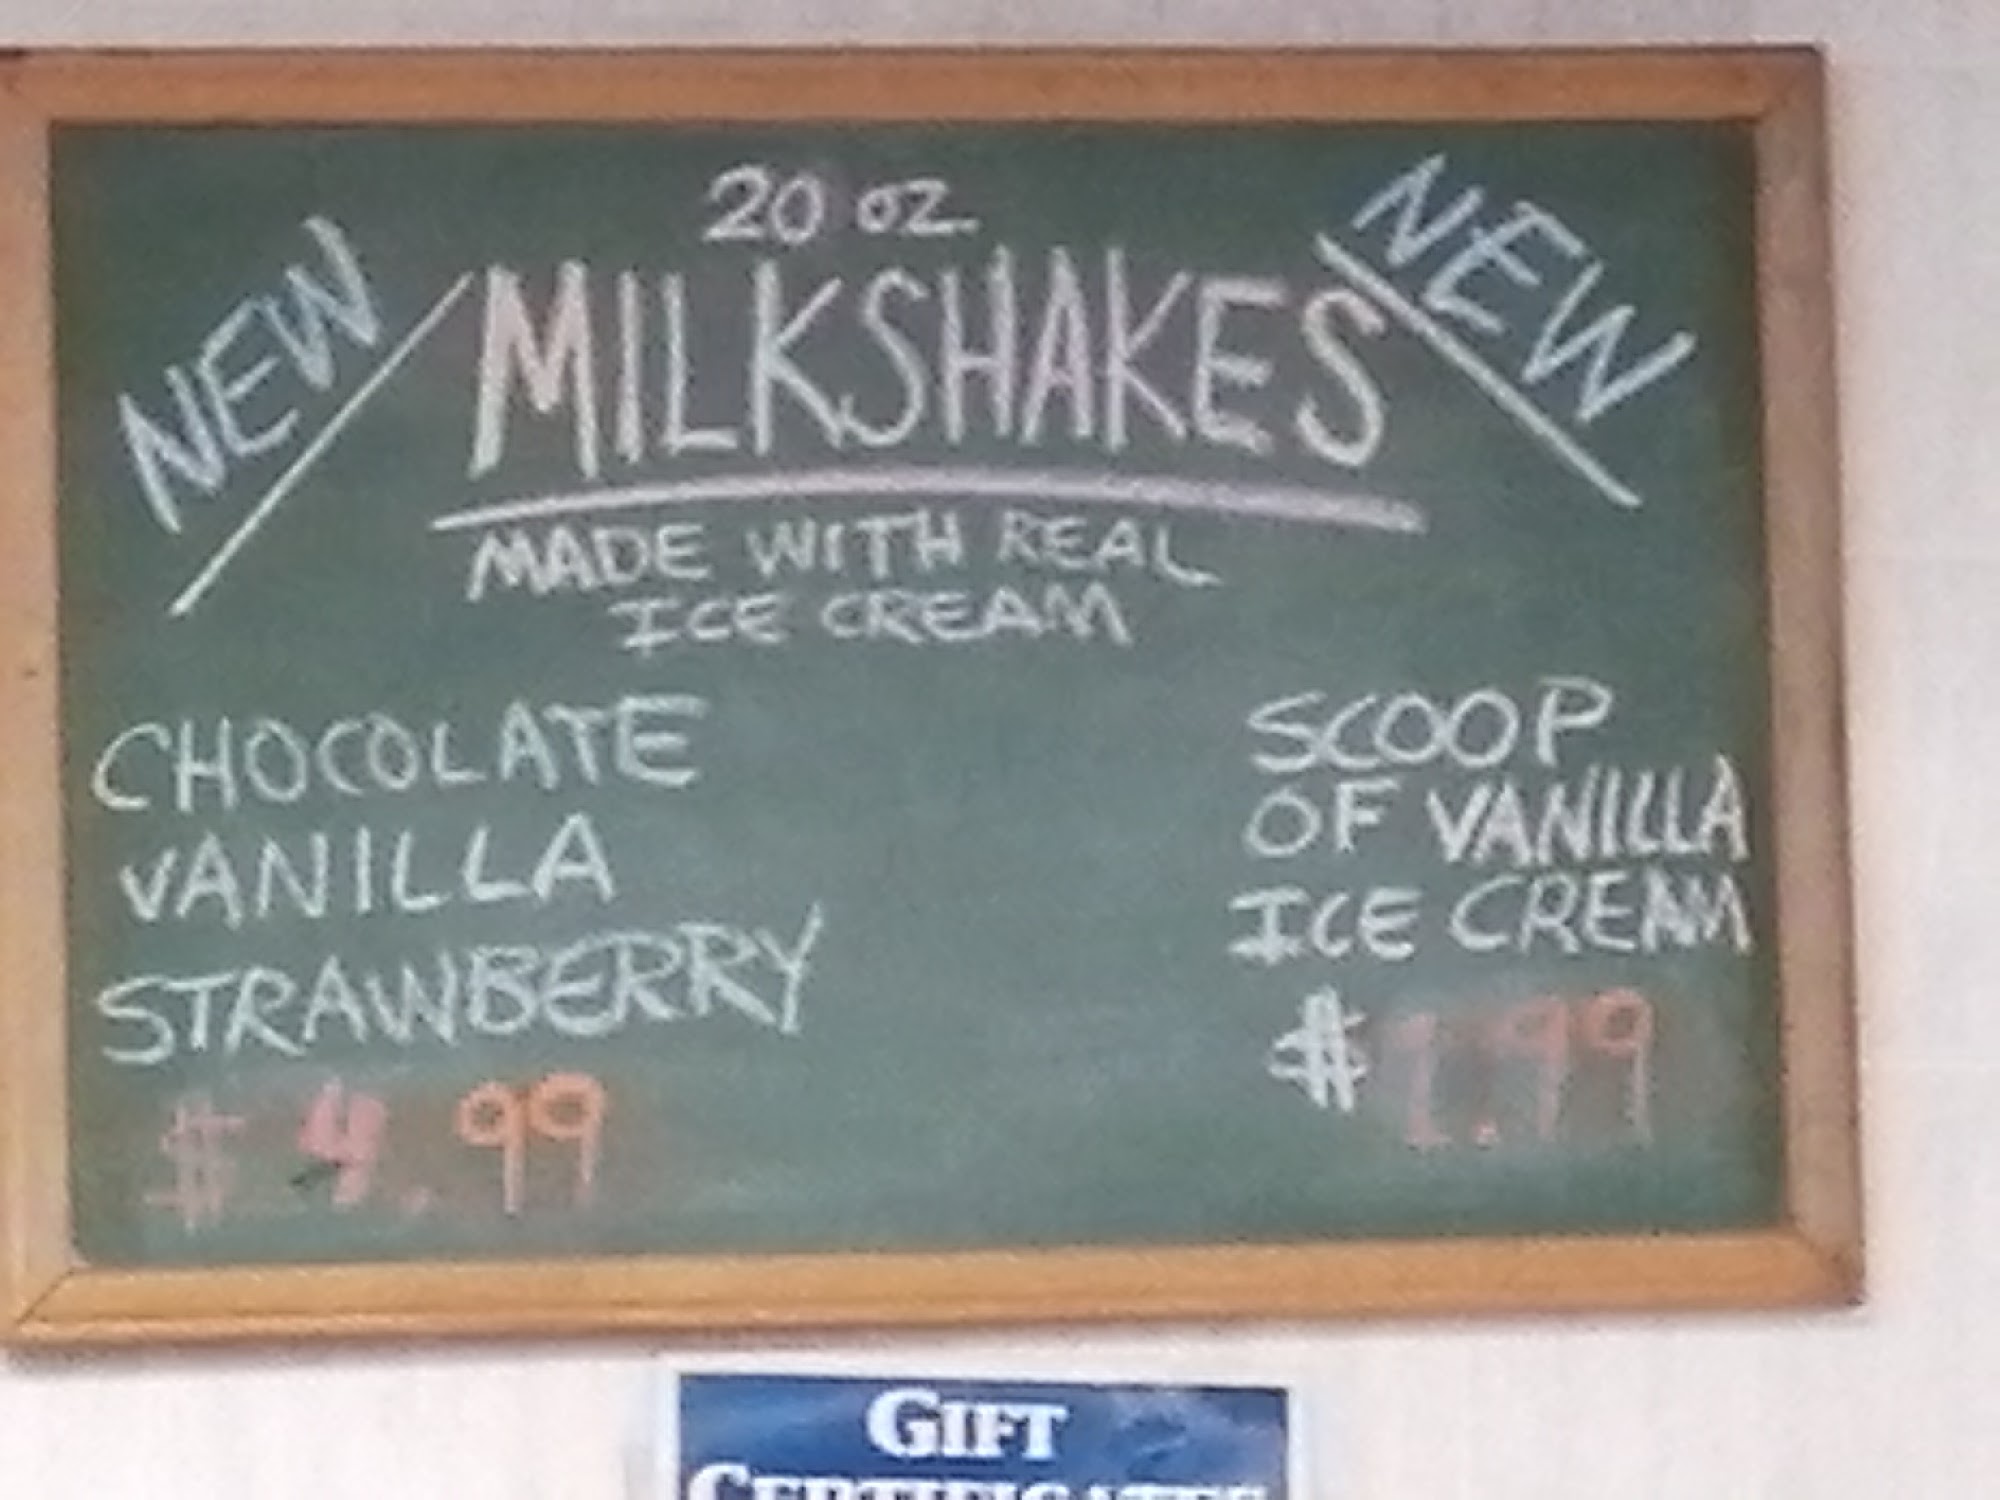 20 oz
NEW MILKSHAKES NEW
MADE WITH REAL
ICE CREAM
CHOCOLATE
VANILLA
STRAWBERRY
$4.99
SCOOP
OF VANILLA
ICE CREAM
$1.99
GIFT
CERTIFICATES